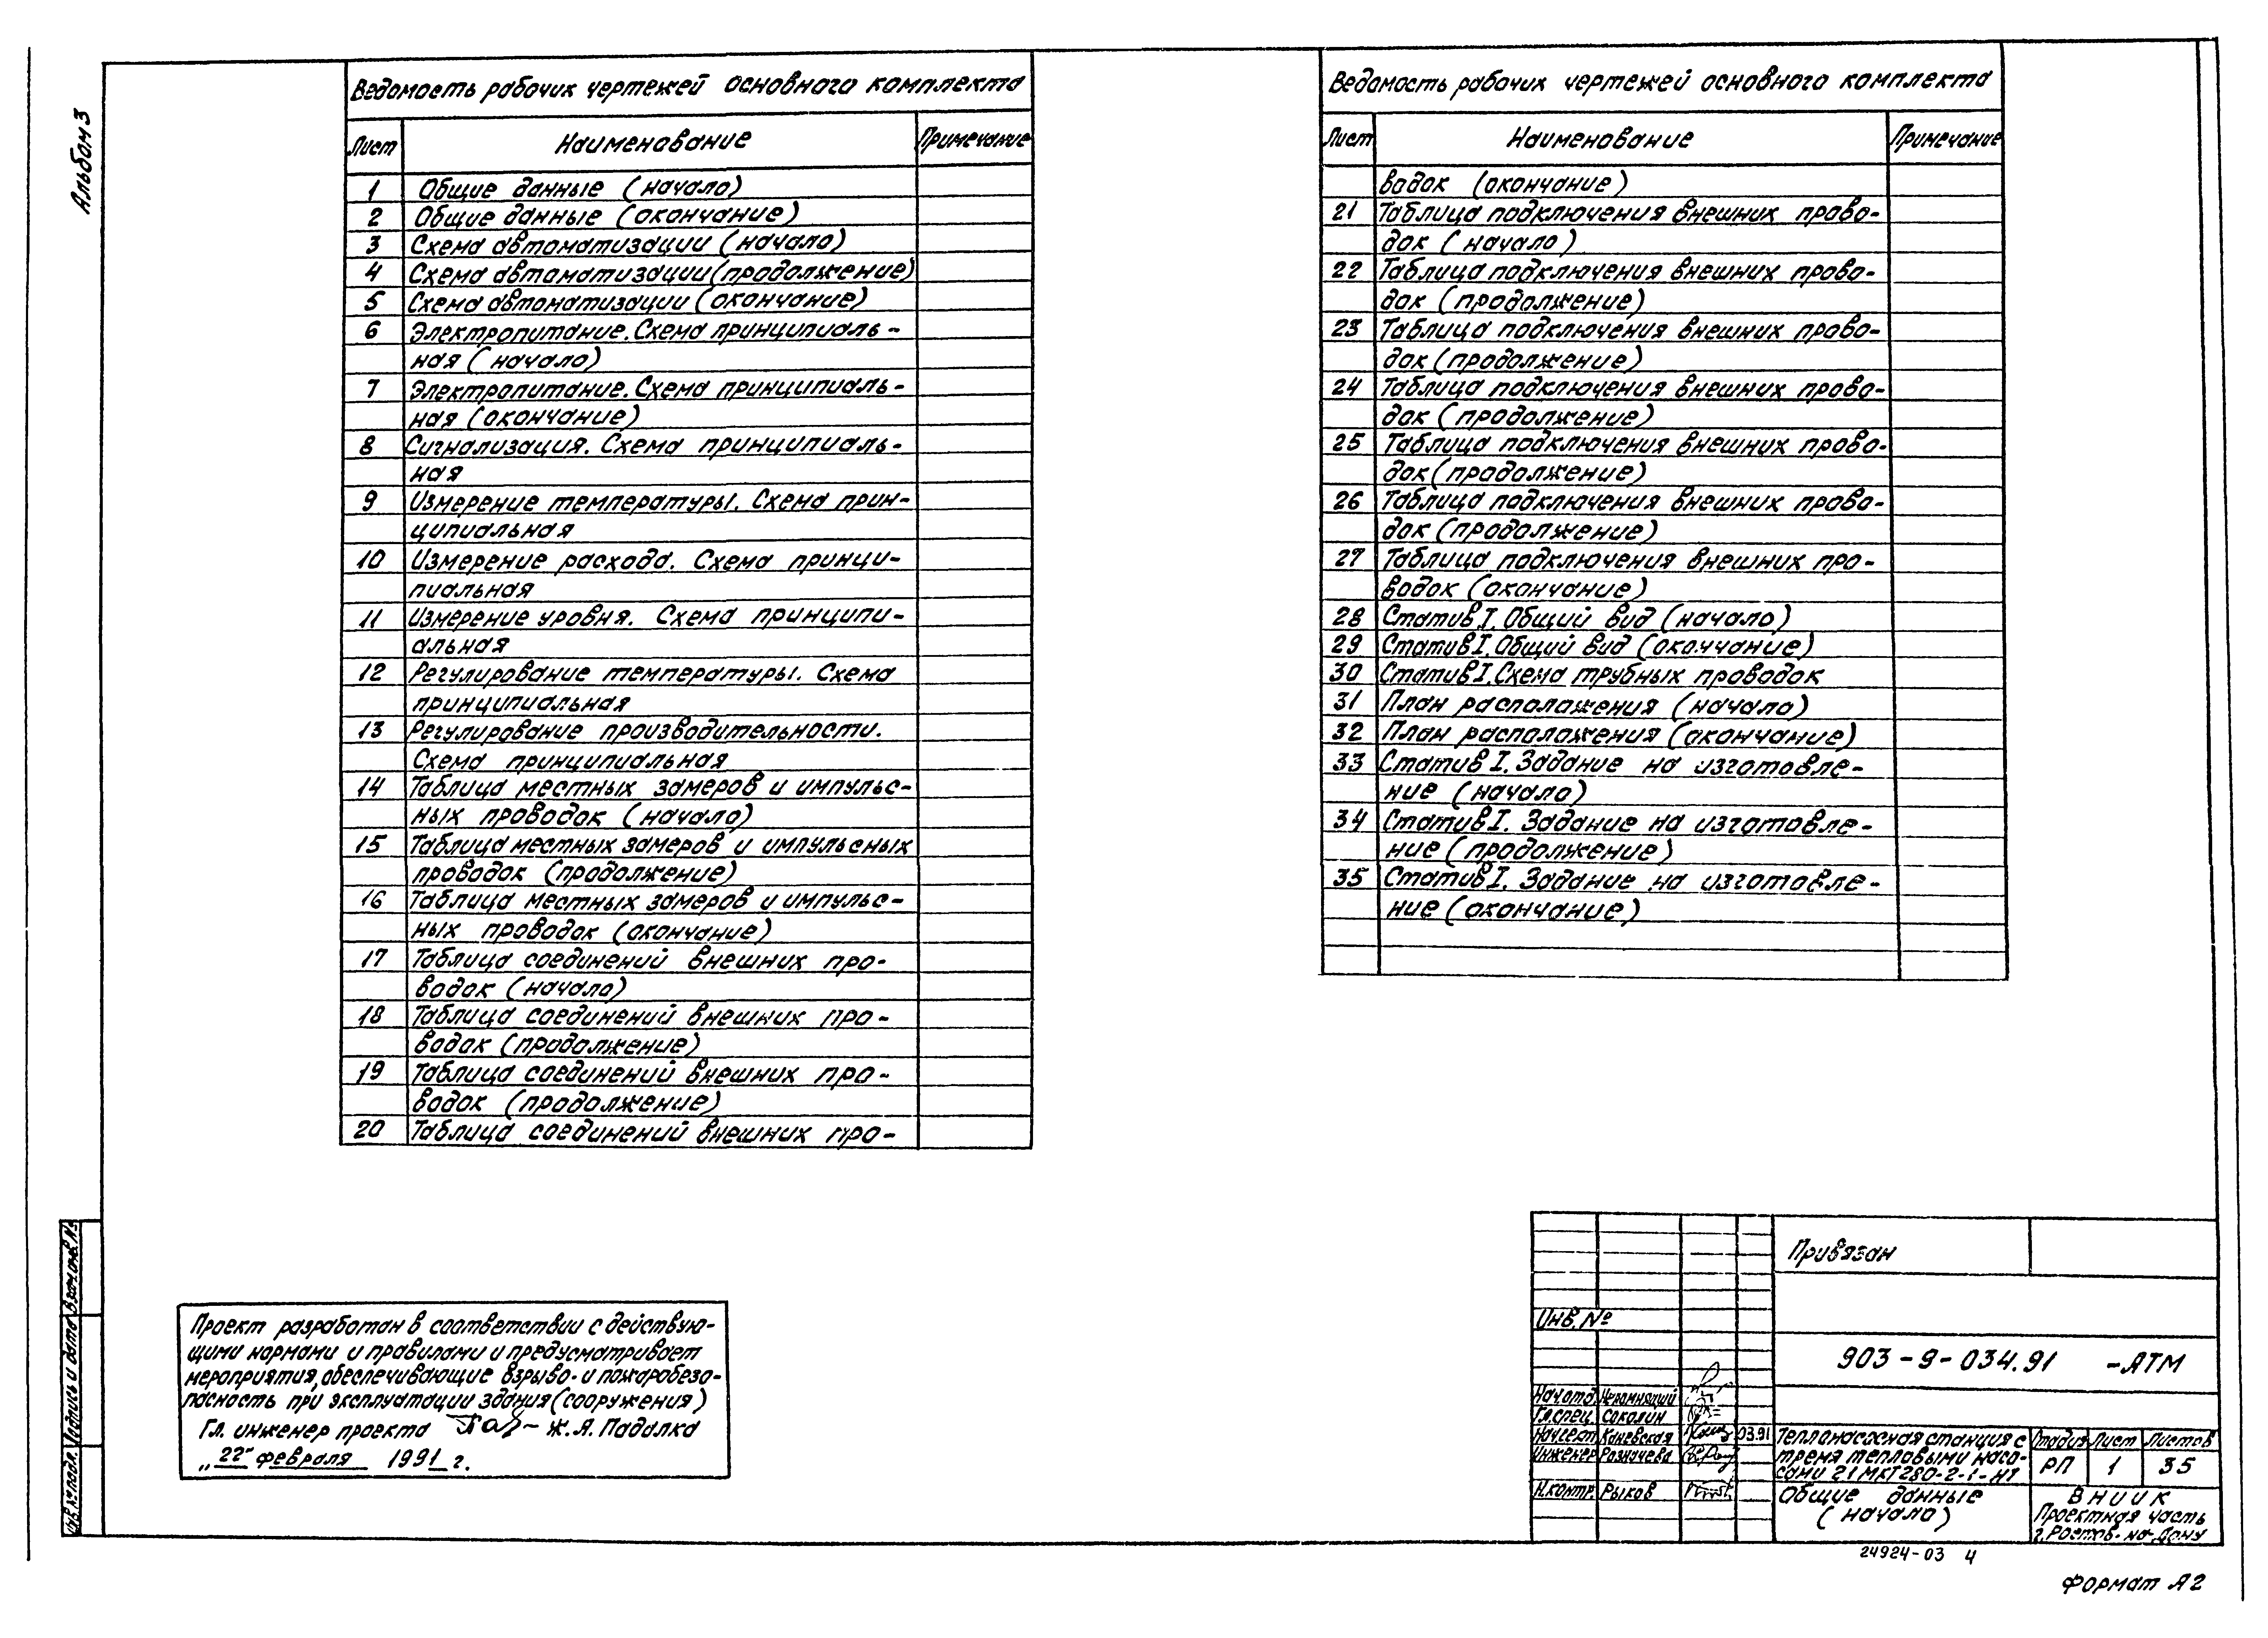 Альбом 3
Ведомость рабочих чертежей основного комплекта
Лист Наименование Примечание
1 Общие данные (начало)
2 Общие данные (окончание)
3 Схема автоматизации (начало)
4 Схема автоматизации (продолжение)
5 Схема автоматизации (окончание)
6 Электропитание. Схема принципиаль-
ная (начало)
7 Электропитание. Схема принципиаль-
ная (окончание)
8 Сигнализация. Схема принципиаль-
ная
9 Измерение температуры. Схема прин-
ципиальная
10 Измерение расхода. Схема принци-
пиальная
11 Измерение уровня. Схема принципи-
альная
12 Регулирование температуры. Схема
принципиальная
13 Регулирование производительности.
Схема принципиальная
14 Таблица местных замеров и импульс-
ных проводок (начало)
15 Таблица местных замеров и импульсных
проводок (продолжение)
16 Таблица местных замеров и импульс-
ных проводок (окончание)
17 Таблица соединений внешних про-
водок (начало)
18 Таблица соединений внешних про-
водок (продолжение)
19 Таблица соединений внешних про-
водок (продолжение)
20 Таблица соединений внешних про-
Ведомость рабочих чертежей основного комплекта
Лист Наименование Примечание
водок (окончание)
21 Таблица подключения внешних прово-
док (начало)
22 Таблица подключения внешних прово-
док (продолжение)
23 Таблица подключения внешних прово-
док (продолжение)
24 Таблица подключения внешних прово-
док (продолжение)
25 Таблица подключения внешних прово-
док (продолжение)
26 Таблица подключения внешних прово-
док (продолжение)
27 Таблица подключения внешних про-
водок (окончание)
28 Статив I. Общий вид (начало)
29 Статив I. Общий вид (окончание)
30 Статив I. Схема трубных проводок
31 План расположения (начало)
32 План расположения (окончание)
33 Статив I. Задание на изготовле-
ние (начало)
34 Статив I. Задание на изготовле-
ние (продолжение)
35 Статив I. Задание на изготовле-
ние (окончание)
Проект разработан в соответствии с действую-
щими нормами и правилами и предусматривает
мероприятия, обеспечивающие взрыво- и пожаробезо-
пасность при эксплуатации здания (сооружения)
Гл. инженер проекта Ж.А. Падалка
„22" февраля 1991 г.
Инв. № подл. Подпись и дата Взам. инв. №
Привязан
Инв. №
903-9-034.91 -АТМ
Нач. отд.
Гл. спец. Соколин
Нач. сект. Каневская 03.91
Инженер Розничева
Н. контр. Рыков
Теплонасосная станция с
тремя тепловыми насо-
сами 21МКТ280-2-1-НТ
Стадия Лист Листов
РП 1 35
Общие данные
(начало)
ВНИИК
Проектная часть
г. Ростов-на-Дону
24924-03 4
Формат А2